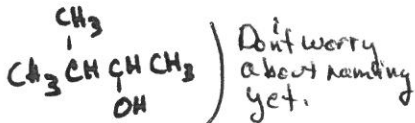 CH3
CH3 CH CH CH3
OH
Don't worry
about naming
yet.